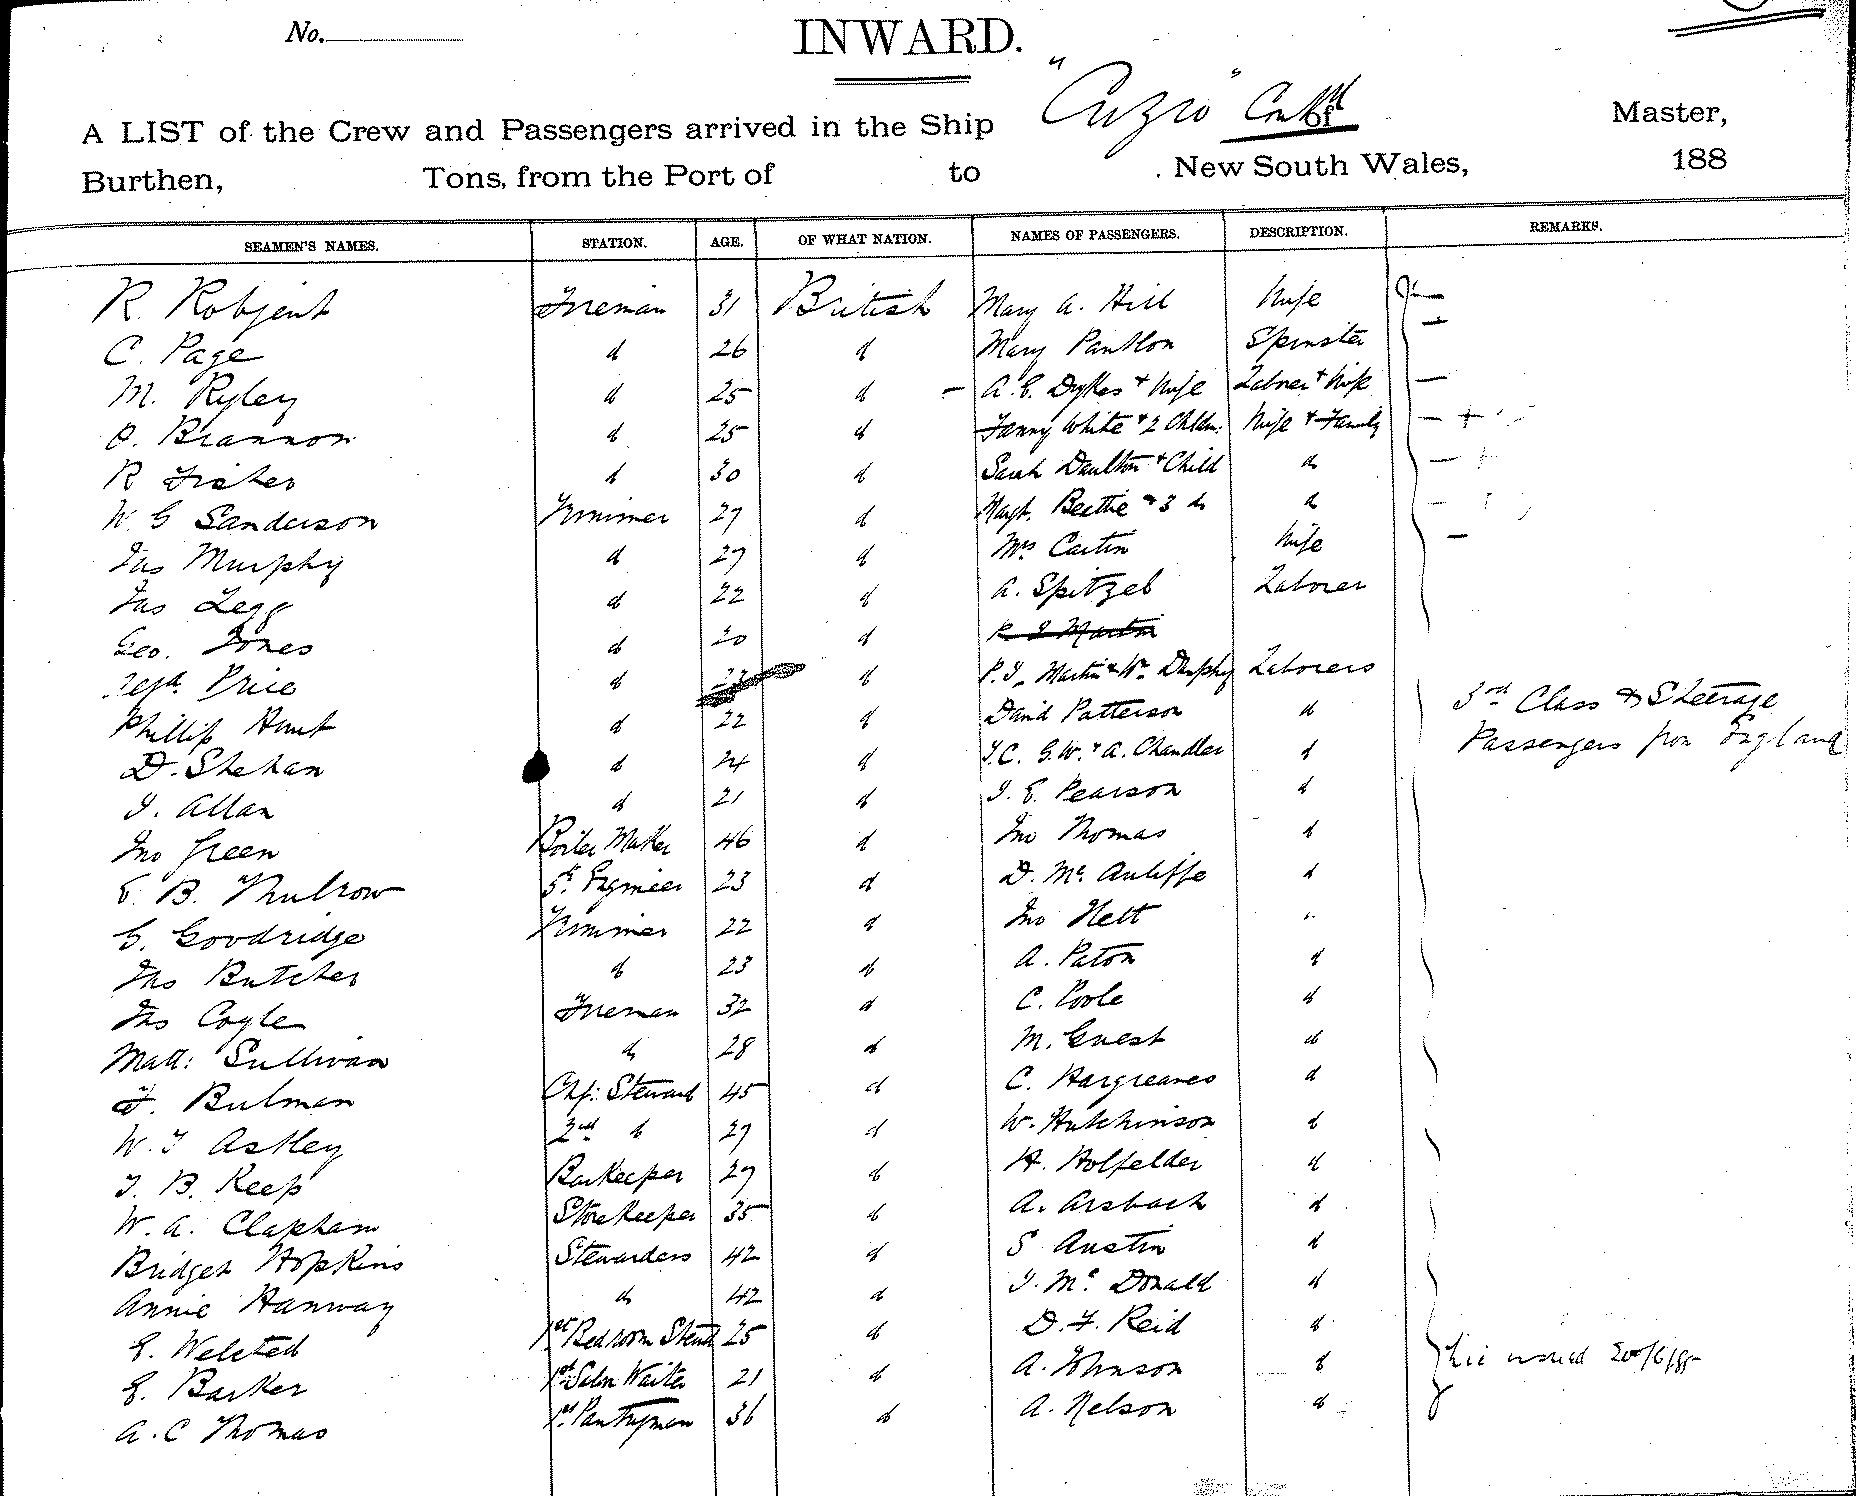 No.
INWARD.
A LIST of the Crew and Passengers arrived in the Ship "Cuzco" Contd of Master,
Burthen, Tons, from the Port of to New South Wales, 188
SEAMEN'S NAMES. STATION. AGE. OF WHAT NATION. NAMES OF PASSENGERS. DESCRIPTION. REMARKS.
R. Robjent Fireman 31 British Mary A. Hill Wife
C. Page d 26 d Mary Pantlon Spinster
M. Ryley d 25 d A. E. Dykes + Wife Laborer + Wife
P. Brannon d 25 d Fanny White + 2 Chldn. Wife + Family
R Fisher d 30 d Sarah Daulton + Child d
W. G Sanderson Trimmer 27 d Margt. Beattie + 3 d d
Jas Murphy d 27 d Mrs Cartin Wife
Jas Legg d 22 d A. Spitzel Laborer
Geo. Jones d 20 d R J Martin
Price d 23 d P. J. Martin + Wm Dunphy Laborers
Phillip Hunt d 22 d David Patterson d 3rd Class & Steerage
D. Shehan d 24 d J. C. G. W. + A. Chandler d Passengers from England
J. Allan d 21 d J. E. Pearson d
Jno Green Boiler Maker 46 d Jno Thomas d
E. B. Thubrow 5th Engineer 23 d D. Mc Auliffe d
G. Goodridge Trimmer 22 d Jno Nett "
Thos Butcher d 23 d A. Paton d
Thos Coyle Fireman 32 d C. Poole d
Matt: Sullivan d 28 d M. Guest d
F. Bulman Chf: Steward 45 d C. Hargreaves d
W. J Astley 2nd d 27 d W. Hutchinson d
J. B. Keep Barkeeper 27 d H. Holfelder d
W. A. Clapham Storekeeper 35 d A. Arsbach d
Bridget Hopkins Stewardess 42 d S Austin d
Annie Hanway d 42 d J. Mc Donald d
E. Welsted 1st Bedroom Stewd 25 d D. F. Reid d
E. Barker 1st Saln Waiter 21 d A. Johnson d
A. C Thomas 1st Pantryman 36 d A. Nelson d